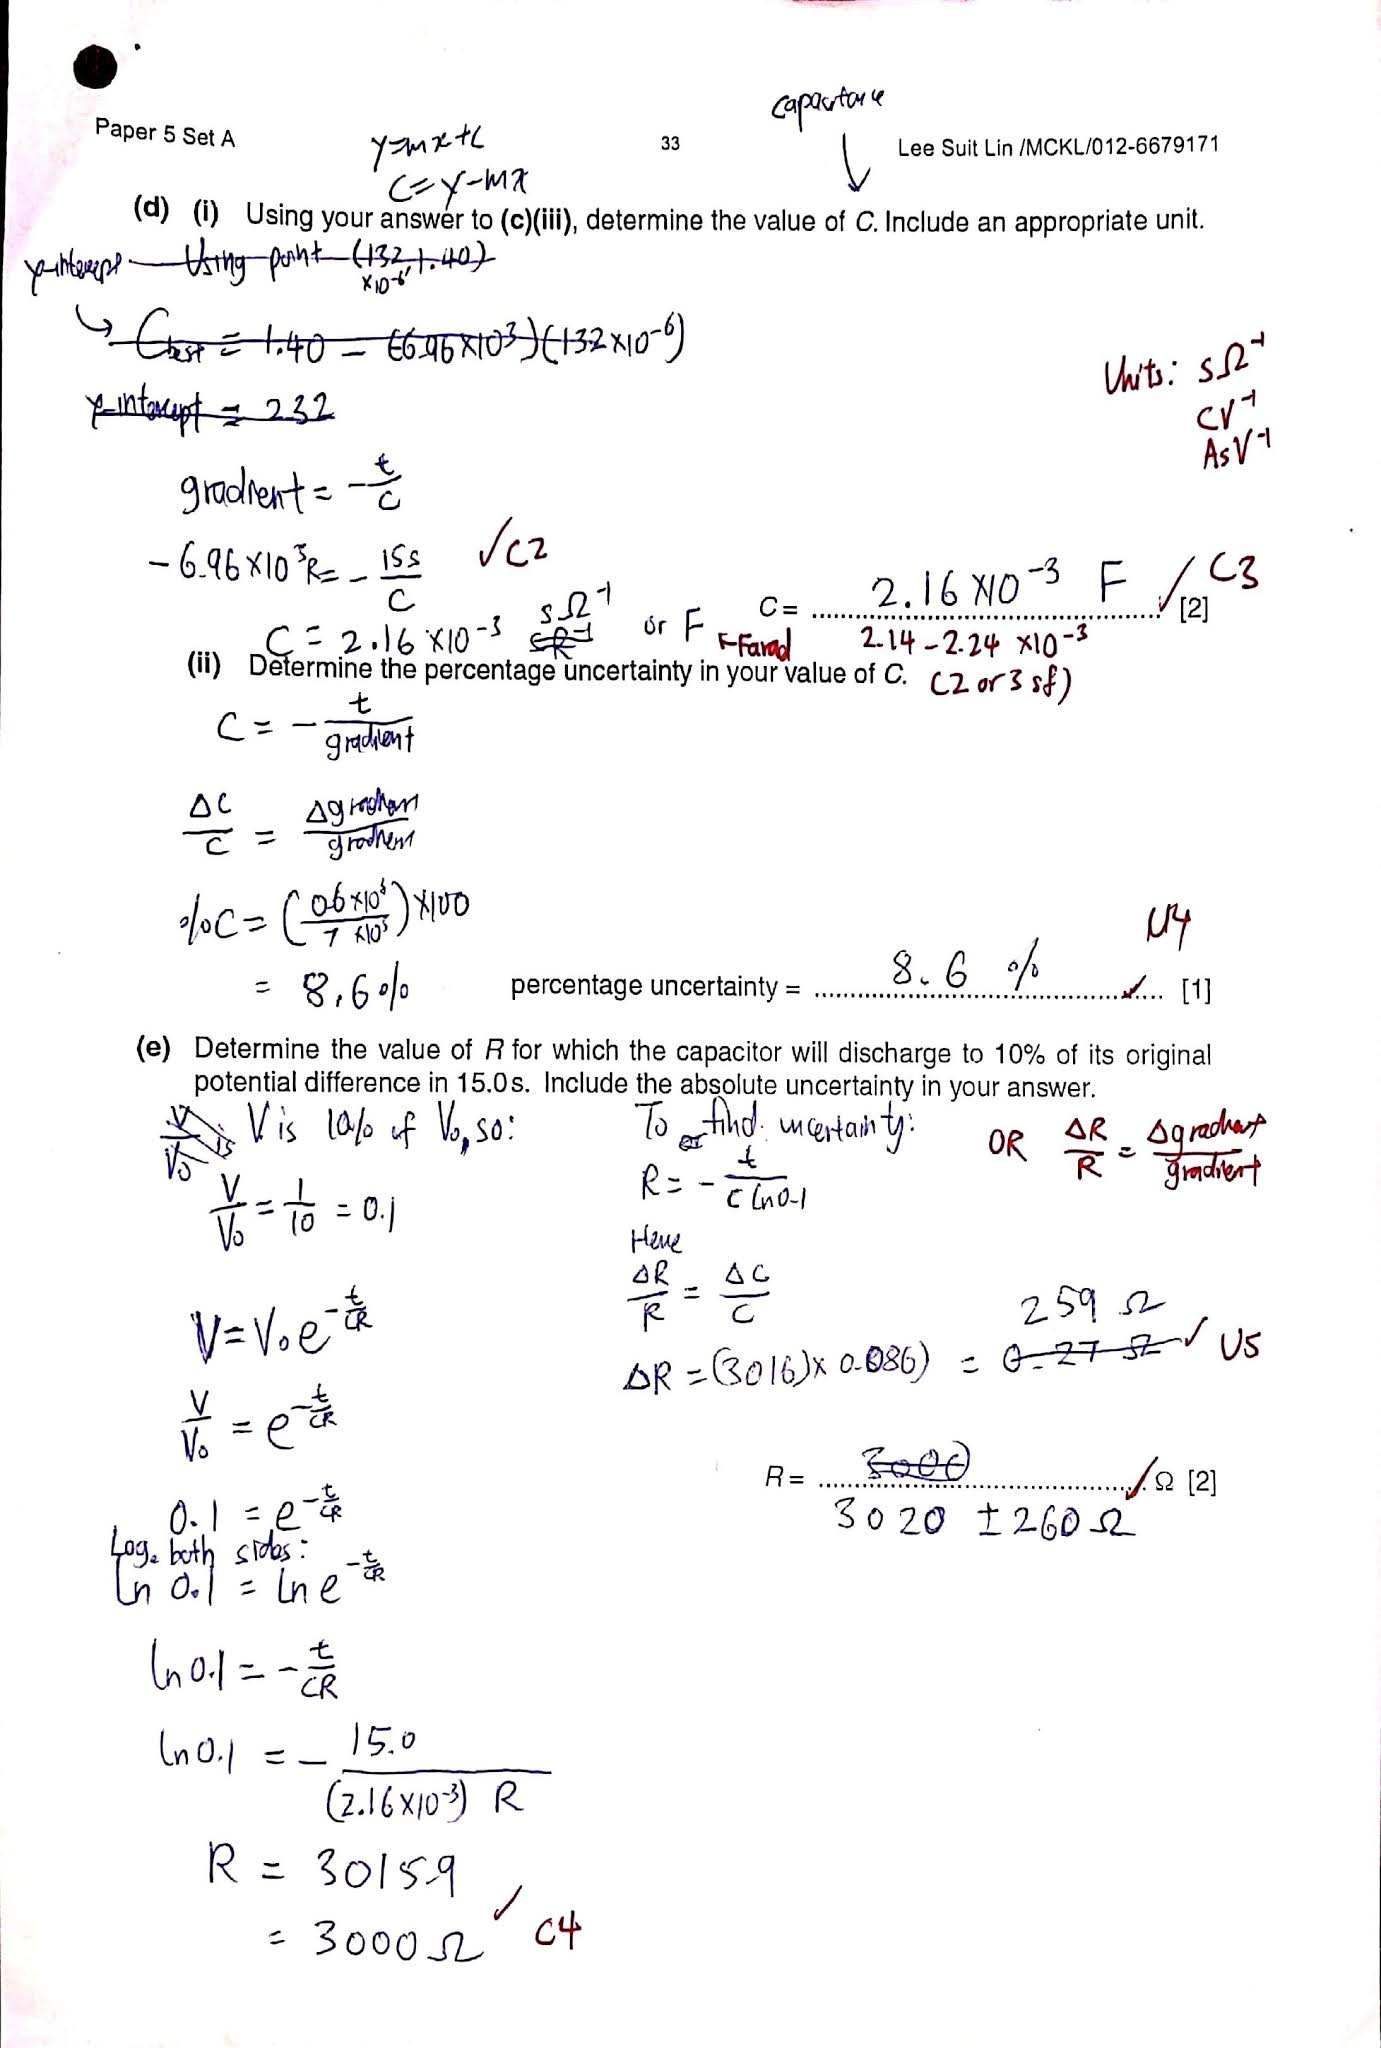 capacitance
Paper 5 Set A
y=mx+c
33
Lee Suit Lin /MCKL/012-6679171
C=y-mx
(d) (i) Using your answer to (c)(iii), determine the value of C. Include an appropriate unit.
y-intercept Using point (132×10⁻⁶, 1.40)
Cbest = 1.40 - (-6.96×10³)(132×10⁻⁶)
y-intercept = 2.32
Units: sΩ⁻¹
CV⁻¹
AsV⁻¹
gradient = -t/C
-6.96×10³ = -15s/C ✓C2
C = 2.16×10⁻³ sΩ⁻¹ or F
F-Farad
C = 2.16×10⁻³ F ✓ C3 [2]
2.14-2.24 ×10⁻³
(2 or 3 sf)
(ii) Determine the percentage uncertainty in your value of C.
C = -t/gradient
ΔC/C = Δgradient/gradient
%C = (0.6×10³/7×10³)×100
= 8.6%
percentage uncertainty = 8.6 % ✓ [1]
U4
(e) Determine the value of R for which the capacitor will discharge to 10% of its original
potential difference in 15.0 s. Include the absolute uncertainty in your answer.
V/V₀ is
V is 10% of V₀, so:
V/V₀ = 1/10 = 0.1
V=V₀e^-t/CR
V/V₀ = e^-t/CR
0.1 = e^-t/CR
Logₑ both sides:
ln 0.1 = ln e^-t/CR
ln 0.1 = -t/CR
ln 0.1 = -15.0/(2.16×10⁻³) R
R = 3015.9
= 3000Ω ✓ C4
To find uncertainty:
R = -t/C ln0.1
Here
ΔR/R = ΔC/C
OR ΔR/R = Δgradient/gradient
ΔR = (3016)×0.086) = 0.27 Ω 259 Ω ✓ U5
R = 3000 ✓ Ω [2]
3020 ± 260Ω